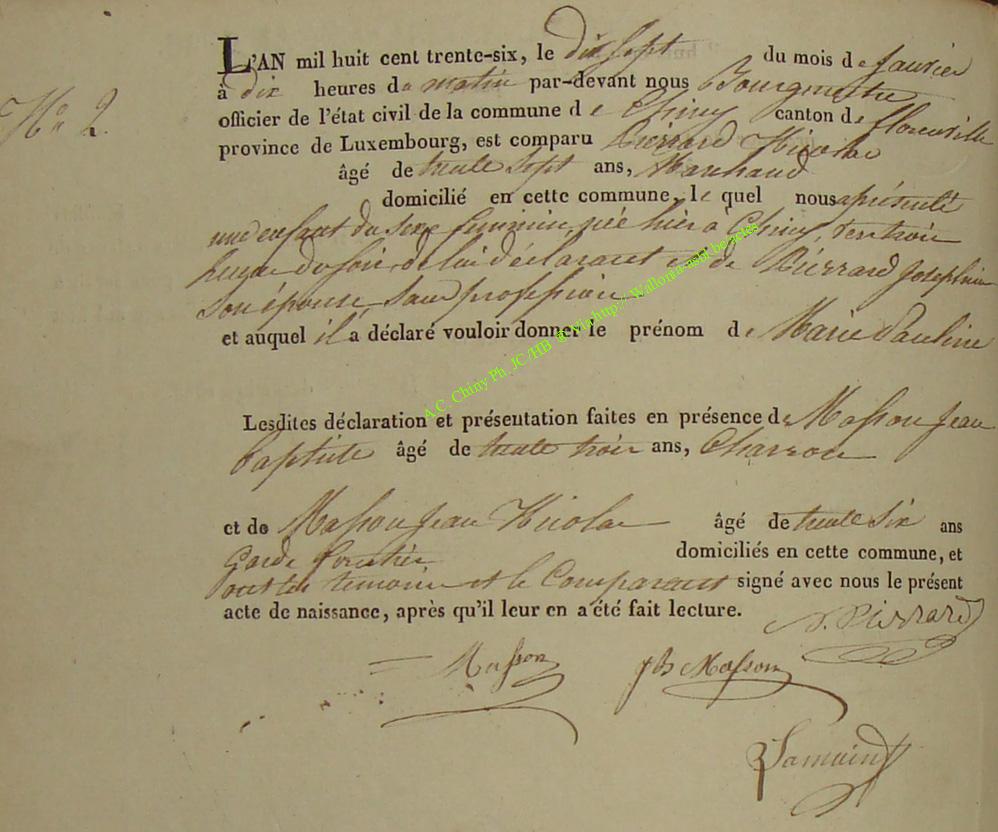 L'AN mil huit cent trente-six, le dix Sept du mois de Janvier
à dix heures de matin par-devant nous Bourgmestre
No 2.
officier de l'état civil de la commune de Chiny canton de florenville
province de Luxembourg, est comparu Pierrard Nicolas
âgé de trente Sept ans, Marchand
domicilié en cette commune, le quel nous a présenté
une enfant du sexe feminin, née hier à Chiny, vers trois
heures du soir, de lui déclarant et de Pierrard Josephine
son épouse Sans profession
et auquel il a déclaré vouloir donner le prénom de Marie Pauline
A.C. Chiny Ph. JC/HB
Lesdites déclaration et présentation faites en présence de Masson Jean
baptiste âgé de trente trois ans, Charron
et de Masson Jean Nicolas âgé de trente Six ans
Garde forestier domiciliés en cette commune, et
ont les temoins et le Comparant signé avec nous le présent
acte de naissance, après qu'il leur en a été fait lecture.
N. Pierrard
Masson JB Masson
Lamuin